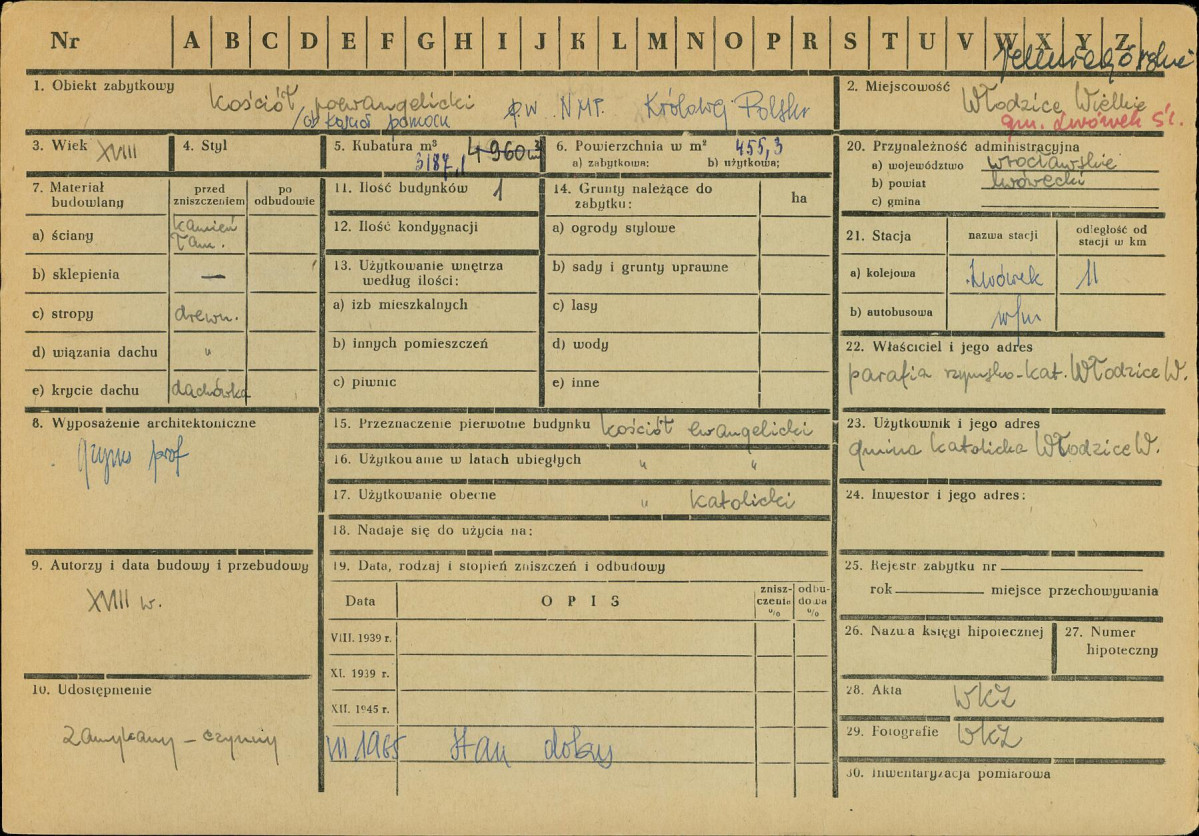 Nr A B C D E F G H I J K L M N O P R S T U V W X Y Z
1. Obiekt zabytkowy
Kościół poewangelicki p.w. NMP. Królowej Polski
pomocn
2. Miejscowość
Włodzice Wielkie
gm. Lwówek Śl.
3. Wiek XVIII
4. Styl
5. Kubatura m³ 4960 m³
3187,1
6. Powierzchnia w m² 455,3
a) zabytkowa; b) użytkowa;
20. Przynależność administracyjna
a) województwo wrocławskie
b) powiat lwówecki
c) gmina
7. Materiał budowlany
przed zniszczeniem
po odbudowie
a) ściany kamień łam.
b) sklepienia —
c) stropy drewn.
d) wiązania dachu "
e) krycie dachu dachówka
11. Ilość budynków 1
12. Ilość kondygnacji
13. Użytkowanie wnętrza
według ilości:
a) izb mieszkalnych
b) innych pomieszczeń
c) piwnic
14. Grunty należące do
zabytku: ha
a) ogrody stylowe
b) sady i grunty uprawne
c) lasy
d) wody
e) inne
21. Stacja
nazwa stacji
odległość od stacji w km
a) kolejowa Lwówek 11
b) autobusowa w/m
22. Właściciel i jego adres
parafia rzymsko-kat. Włodzice W.
8. Wyposażenie architektoniczne
gzyms prof
15. Przeznaczenie pierwotne budynku kościół ewangelicki
16. Użytkowanie w latach ubiegłych " "
17. Użytkowanie obecne " katolicki
18. Nadaje się do użycia na:
23. Użytkownik i jego adres
gmina katolicka Włodzice W.
24. Inwestor i jego adres:
9. Autorzy i data budowy i przebudowy
XVIII w.
19. Data, rodzaj i stopień zniszczeń i odbudowy
Data OPIS zniszczenia % odbudowa %
VIII. 1939 r.
XI. 1939 r.
XII. 1945 r.
VII 1965 stan dobry
25. Rejestr zabytku nr
rok miejsce przechowywania
26. Nazwa księgi hipotecznej
27. Numer
hipoteczny
10. Udostępnienie
zamykany – czynny
28. Akta WKZ
29. Fotografie WKZ
30. Inwentaryzacja pomiarowa